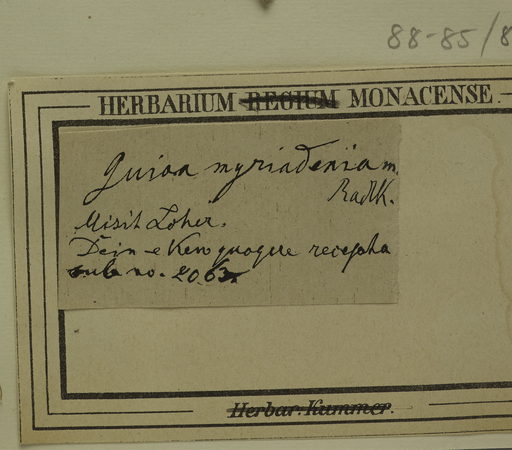 88-85/8
HERBARIUM REGIUM MONACENSE.
Guioa myriadenia m.
Radlk.
Misit Loher.
Dein e Kew quoque recepta
sub no. 2063
Herbar. Kummer.